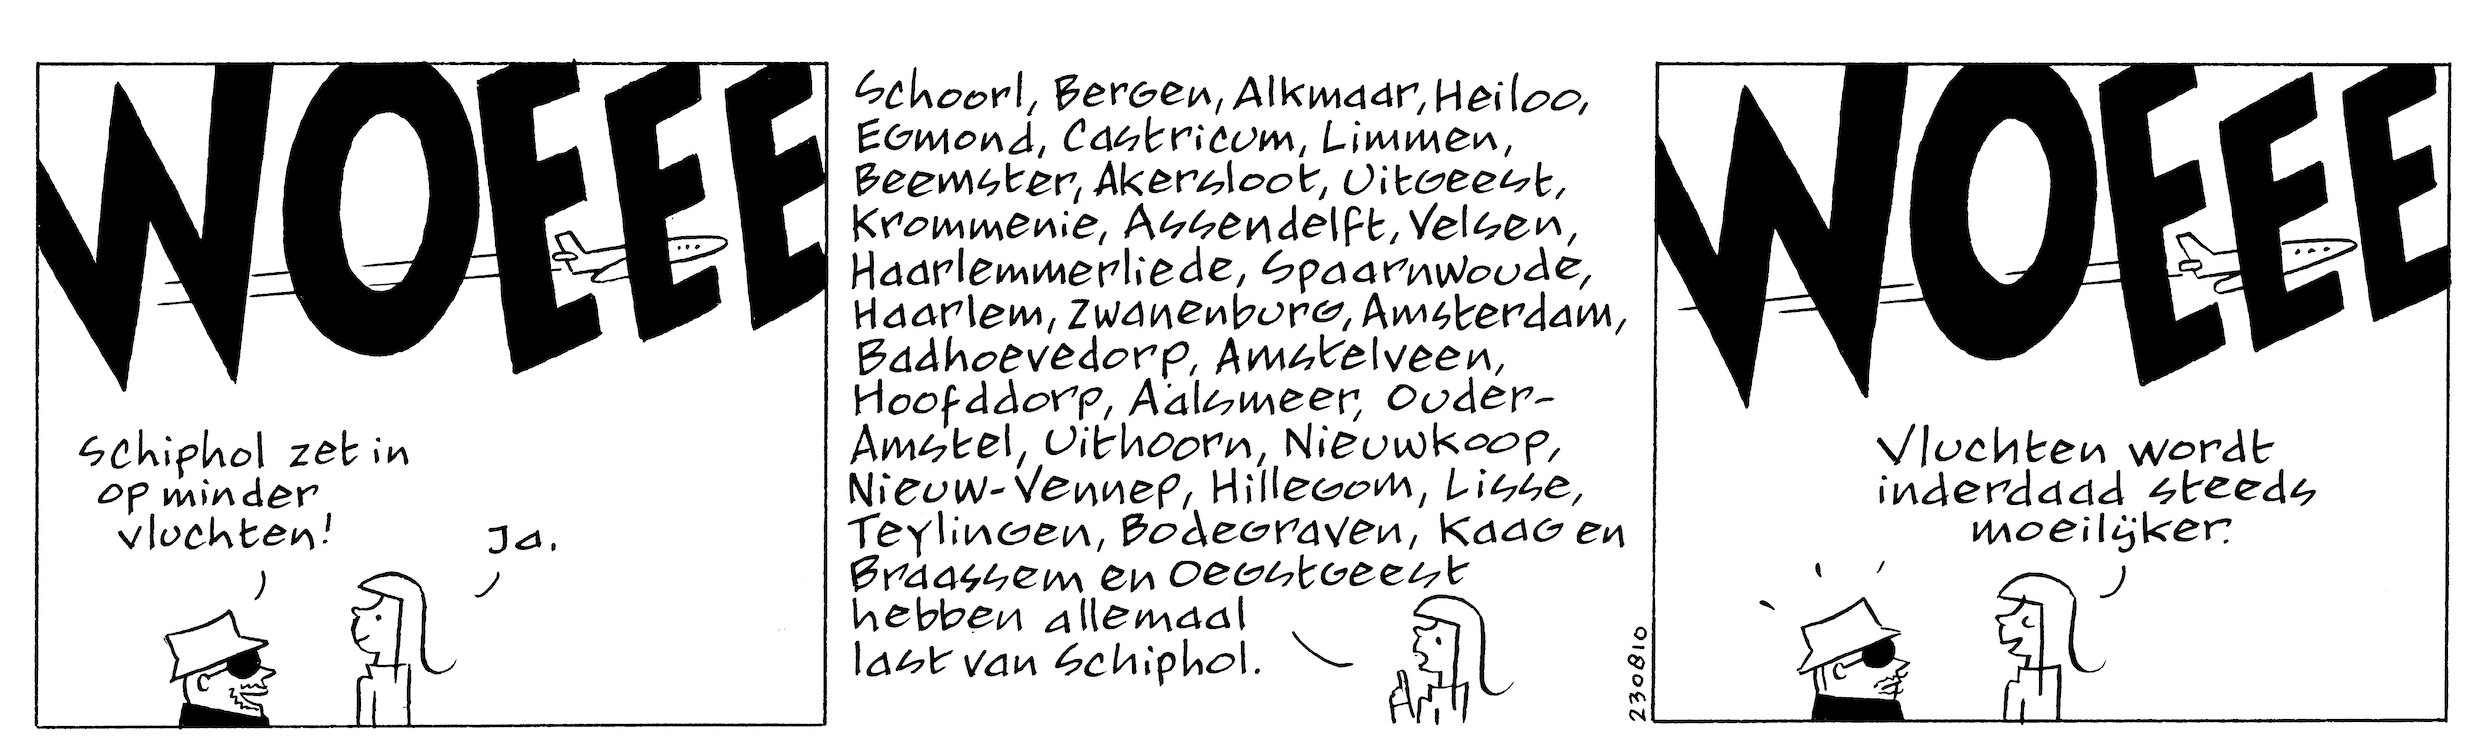 WOEEE
Schiphol zet in
op minder
vluchten!
Ja.
Schoorl, Bergen, Alkmaar, Heiloo,
Egmond, Castricum, Limmen,
Beemster, Akersloot, Uitgeest,
Krommenie, Assendelft, Velsen,
Haarlemmerliede, Spaarnwoude,
Haarlem, Zwanenburg, Amsterdam,
Badhoevedorp, Amstelveen,
Hoofddorp, Aalsmeer, Ouder-
Amstel, Uithoorn, Nieuwkoop,
Nieuw-Vennep, Hillegom, Lisse,
Teylingen, Bodegraven, Kaag en
Braassem en Oegstgeest
hebben allemaal
last van Schiphol.
230810
WOEEE
Vluchten wordt
inderdaad steeds
moeilijker.